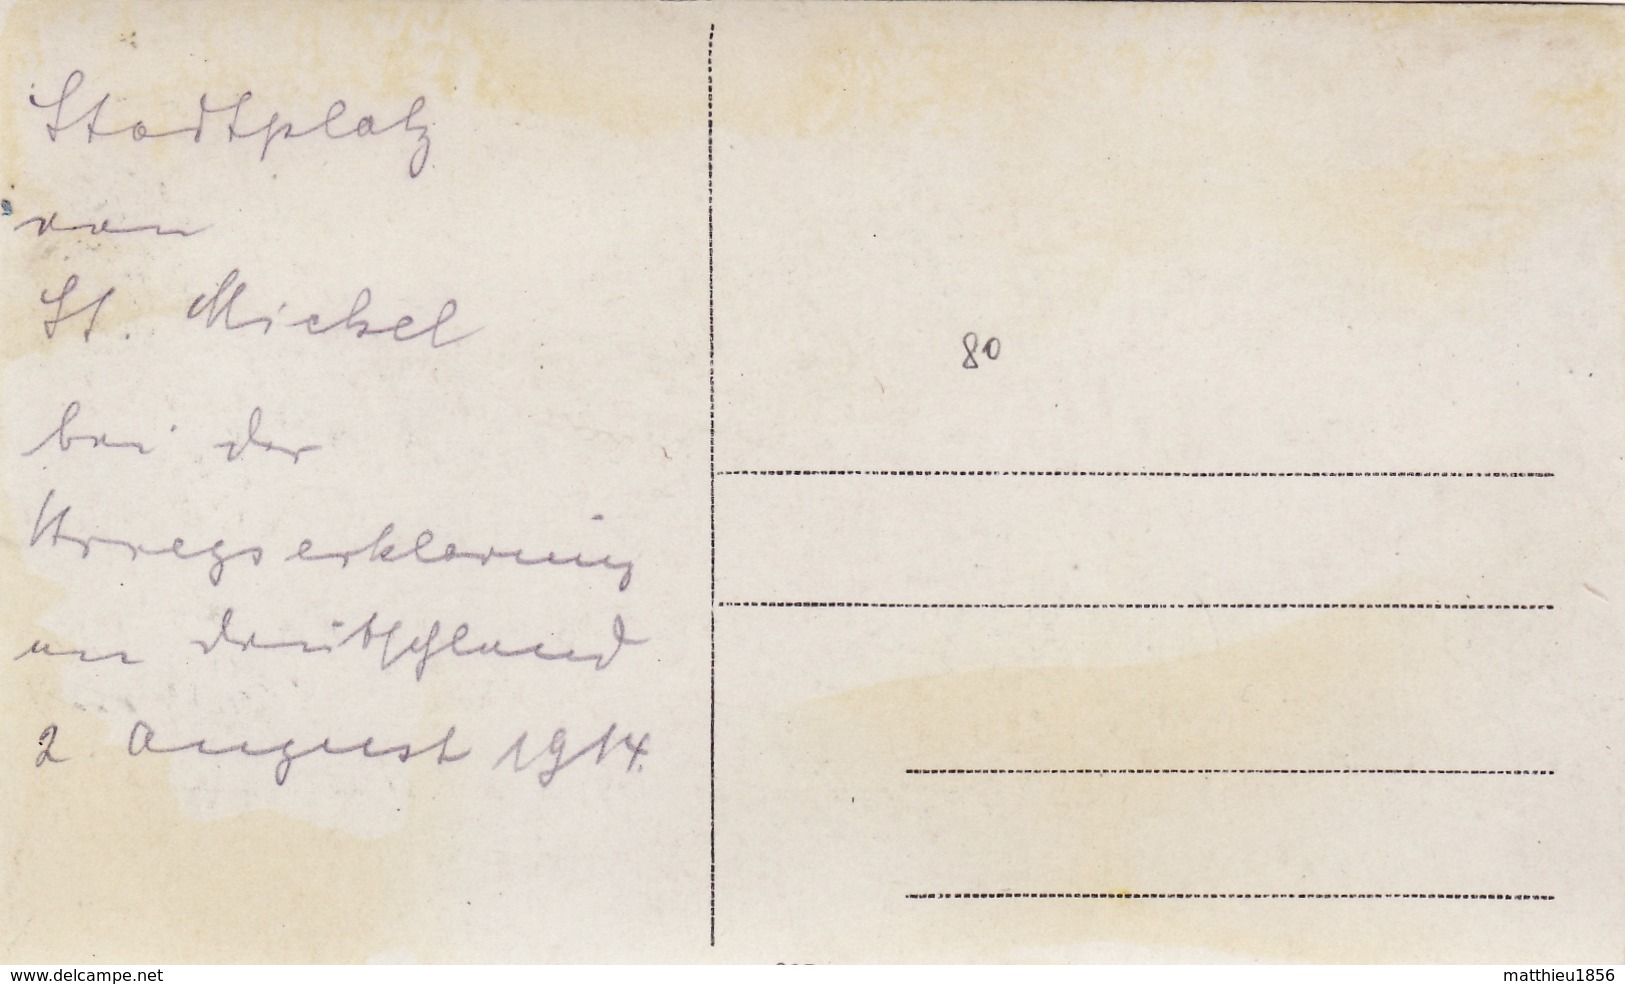 Stadtplatz
von
St. Michel
bei der
Kriegserklärung
an Deutschland
2 August 1914.
80
www.delcampe.net
matthieu1856